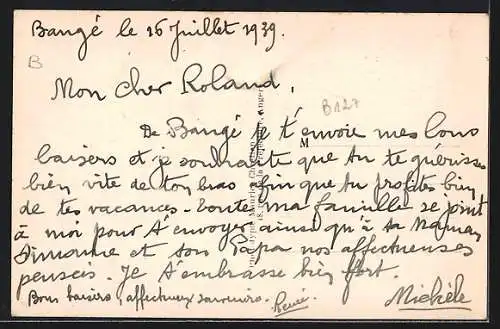 Baugé le 26 Juillet 1939.
B
Mon cher Roland,
B127
De Baugé je t'envoie mes bons
M
baisers et je souhaite que tu te guérisses
bien vite de ton bras afin que tu profites bien
de tes vacances - toute ma famille se joint
à moi pour t'envoyer ainsi qu'à ta Maman
Simonne et ton Papa nos affectueuses
pensées. Je t'embrasse bien fort.
Bons baisers, affectueux souvenirs.
Renée.
Michèle